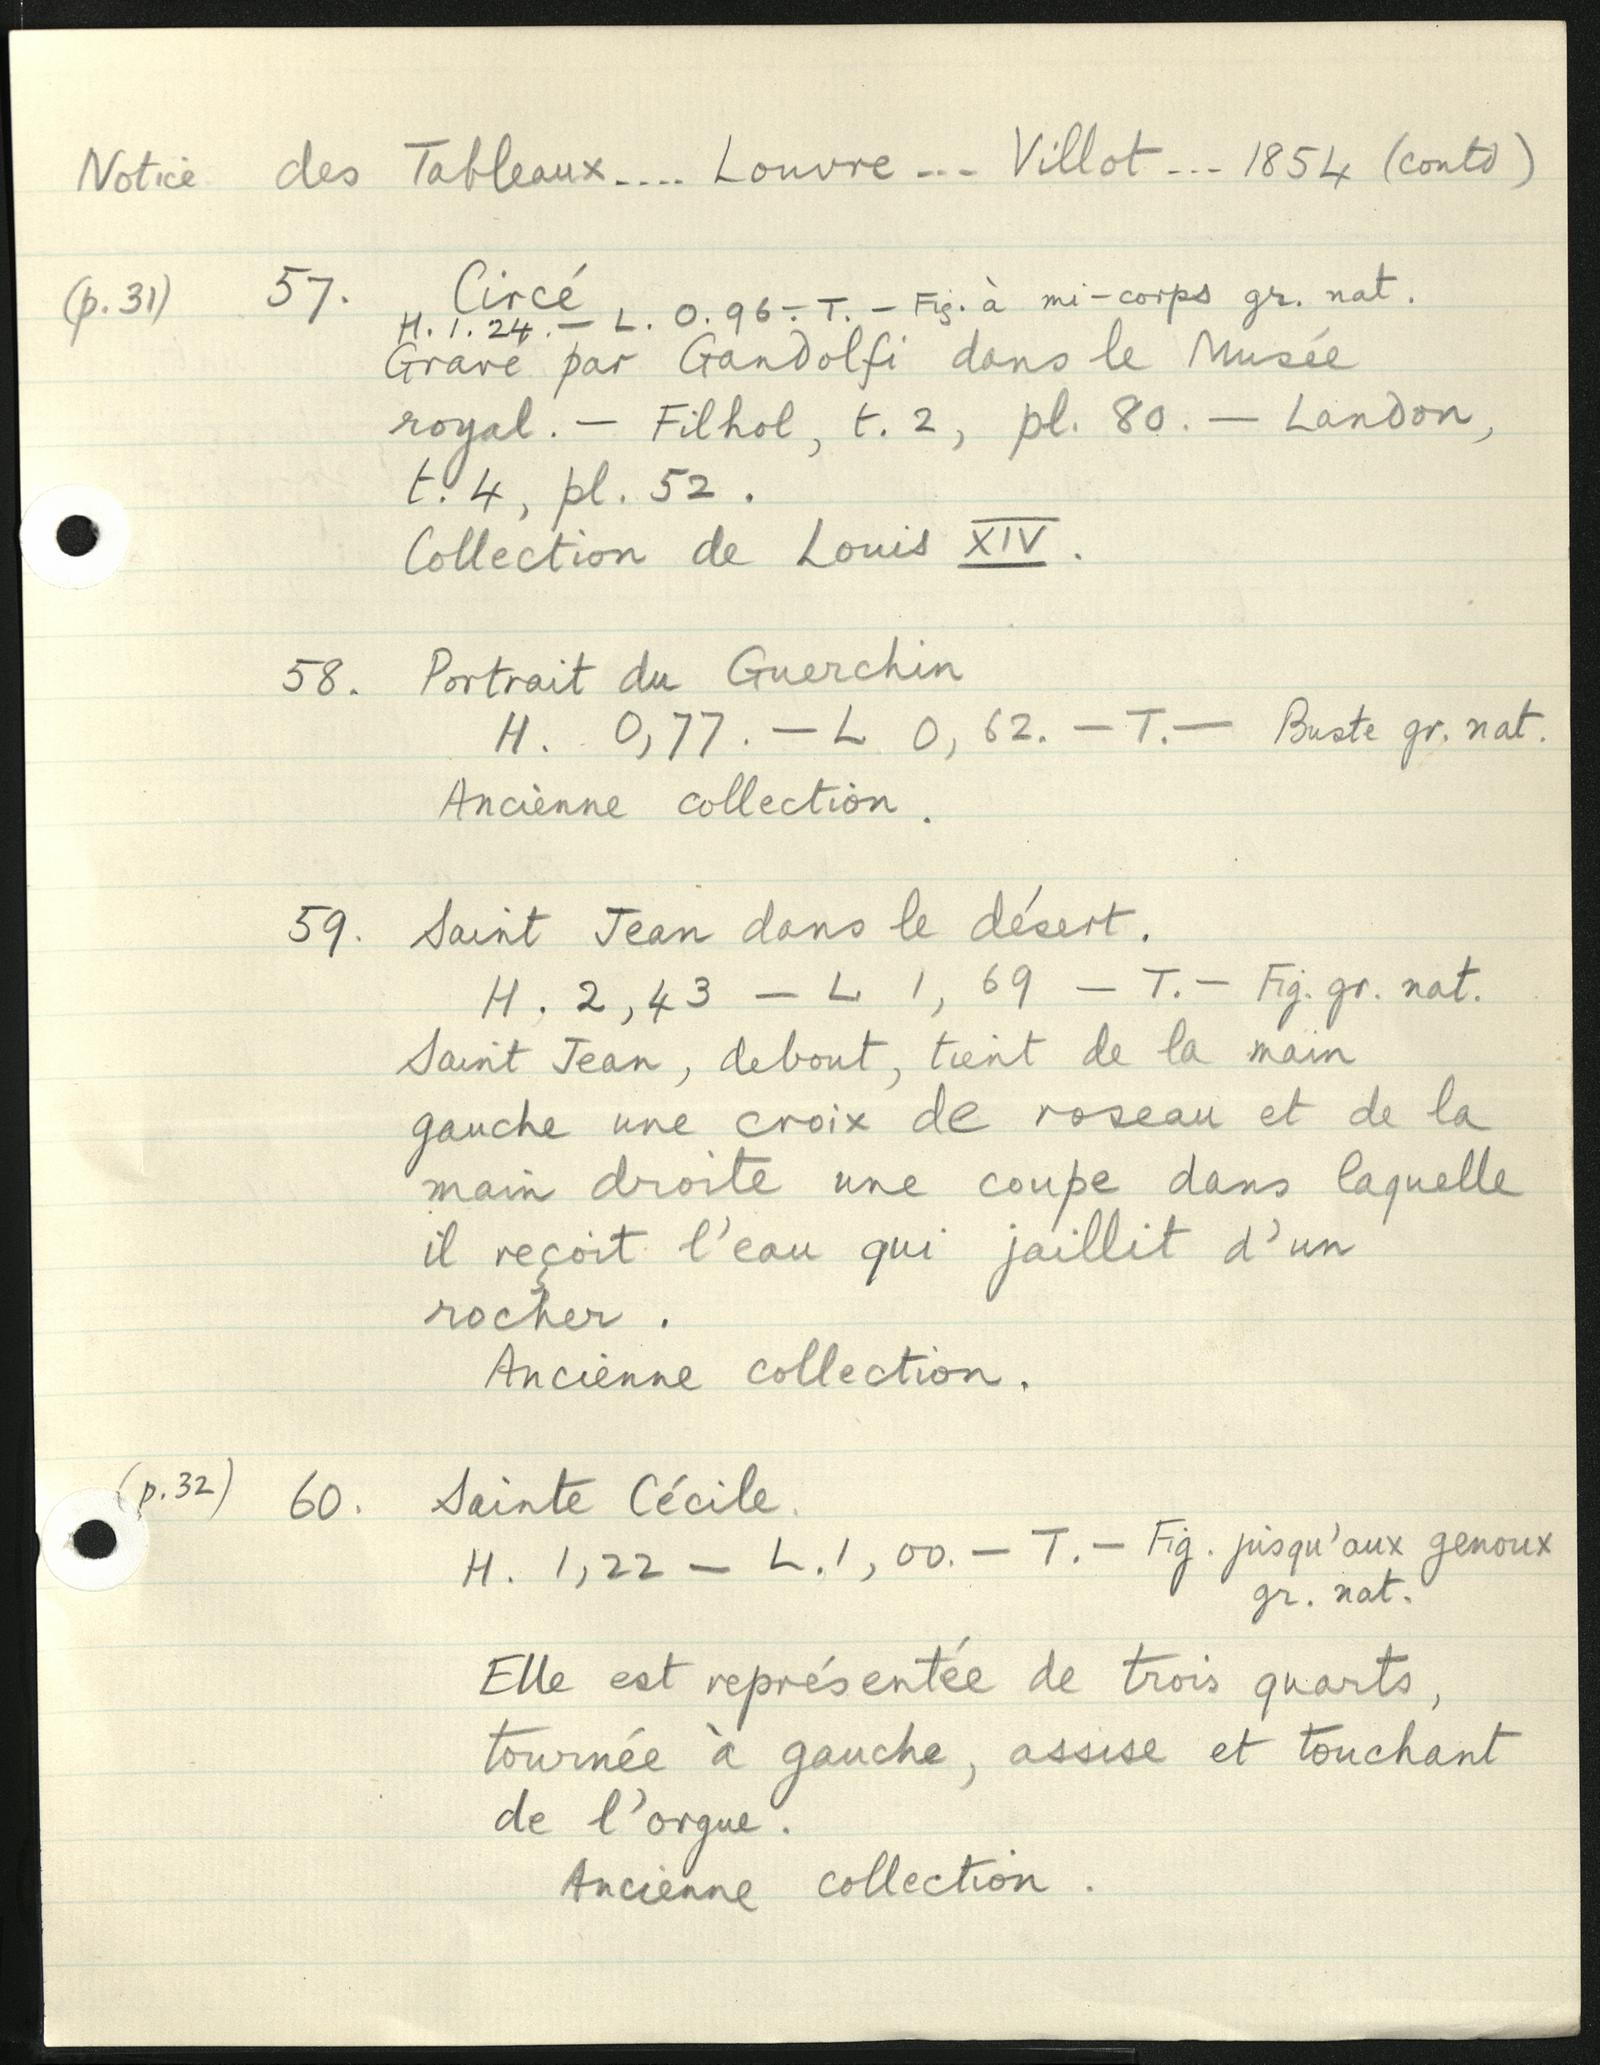 Notice des Tableaux.... Louvre --- Villot --- 1854 (contd)
(p. 31) 57. Circé
H. 1.24. — L. 0.96 – T. – Fig. à mi-corps gr. nat.
Gravé par Gandolfi dans le Musée
royal. – Filhol, t. 2, pl. 80. — Landon,
t. 4, pl. 52.
Collection de Louis XIV.
58. Portrait du Guerchin
H. 0,77. — L 0,62. — T. — Buste gr. nat.
Ancienne collection.
59. Saint Jean dans le désert.
H. 2,43 — L 1,69 — T. – Fig. gr. nat.
Saint Jean, debout, tient de la main
gauche une croix de roseau et de la
main droite une coupe dans laquelle
il reçoit l'eau qui jaillit d'un
rocher.
Ancienne collection.
(p. 32) 60. Sainte Cécile.
H. 1,22 — L. 1,00. — T. — Fig. jusqu'aux genoux
gr. nat.
Elle est représentée de trois quarts,
tournée à gauche, assise et touchant
de l'orgue.
Ancienne collection.